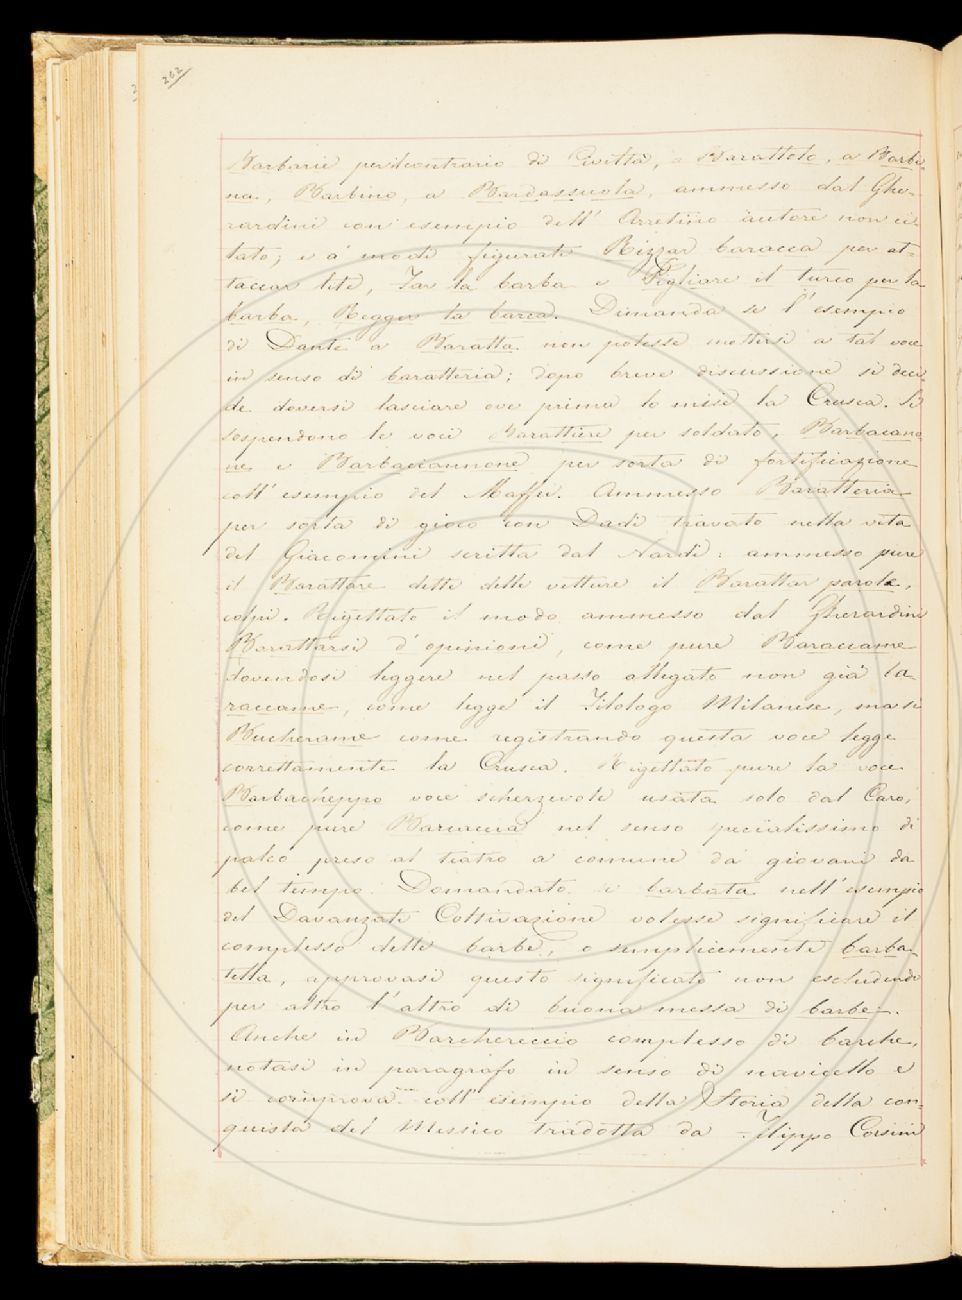 262
Barbarie per lcontrario di Civiltà, a Barattolo, a Barbi-
na, Barbino, a Bardassuola, ammesso dal Ghe-
rardini con esempio dell' Arretino autore non ci-
tato; e a' modi figurati Rizzar baracca per at-
taccar lite, Far la barba e Pigliare il turco per la
barba, Regger la barca. Dimanda se l' esempio
di Dante a Baratta non potesse mettersi a tal voce
in senso di baratteria; dopo breve discussione si deci-
de doversi lasciare ove prima lo mise la Crusca. Si
sospendono le voci Barattiere per soldato, Barbacano
ne e Barbaciannone per sorta di fortificazione
coll' esempio del Maffei. Ammesso Baratteria
per sorta di gioco con Dadi trovato nella vita
del Giacomini scritta dal Nardi: ammesso pure
il Barattare detto delle vetture il Barattar parole,
colpi. Rigettato il modo ammesso dal Gherardini
Barattarsi d' opinioni, come pure Baraccame
dovendosi leggere nel passo allegato non già ba-
raccame, come legge il Filologo Milanese, ma si
Bucherame come registrando questa voce legge
correttamente la Crusca. Rigettato pure la voce
Barbacheppo voce scherzevole usata solo dal Caro,
come pure Barcaccia nel senso specialissimo di
palco preso al teatro a comune da giovani da
bel tempo. Domandato se barbata nell' esempio
del Davanzati Coltivazione volesse significare il
complesso delle barbe, o semplicemente barba-
tella, approvasi questo significato non escludendo
per altro l' altro di buona messa di barbe.
Anche in Barchereccio complesso di barche,
notasi in paragrafo in senso di navicello e
si comprova coll' esempio della Storia della con-
quista del Messico tradotta da Filippo Corsini